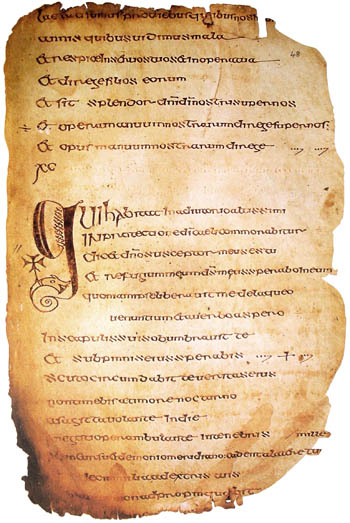 sumus pro diebus quibus nos
annis quibus uidimus mala
48
Et respice in seruos tuos et in opera tua
Et dirige filios eorum
Et sit splendor dni di nostri super nos
Et opera manuum nostrarum dirige super nos
Et opus manuum nostrarum dirige
XC
Qui habitat in adiutorio altissimi
IN protectione di caeli commorabitur
dicet dno susceptor meus es tu
Et refugium meum ds meus sperabo in eum
quoniam ipse liberauit me de laqueo
uenantium et a uerbo aspero
In scapulis suis obumbrauit te
Et sub pinnis eius sperabis
scuto circumdabit te ueritas eius
non timebis a timore nocturno
a sagita uolante in die
negotio perambulante in tenebris mille
demonio meridiano cadent a latere tuo
milia a dextris tuis
non adpropinquabit